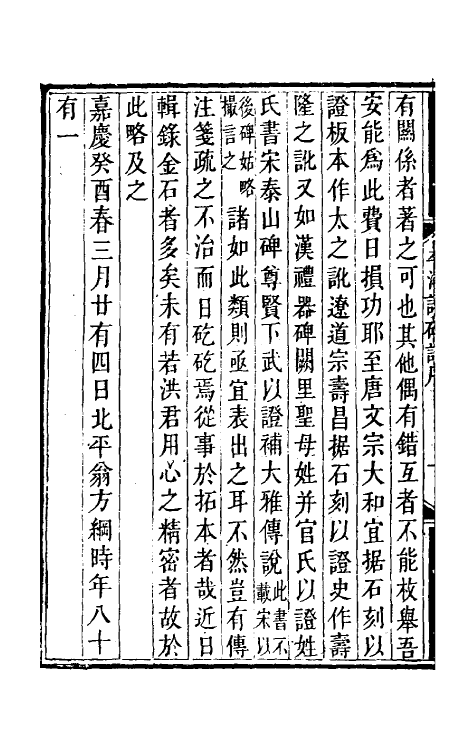 有關係者著之可也其他偶有錯互者不能枚舉吾
安能爲此費日損功耶至唐文宗大和宜据石刻以
證板本作太之訛遼道宗壽昌据石刻以證史作壽
隆之訛又如漢禮器碑闕里聖母姓并官氏以證姓
氏書宋泰山碑尊賢下武以證補大雅傳說此書不載宋以
後碑姑略撮言之諸如此類則亟宜表出之耳不然豈有傳
注箋疏之不治而日矻矻焉從事於拓本者哉近日
輯錄金石者多矣未有若洪君用心之精密者故於
此略及之
嘉慶癸酉春三月廿有四日北平翁方綱時年八十
有一